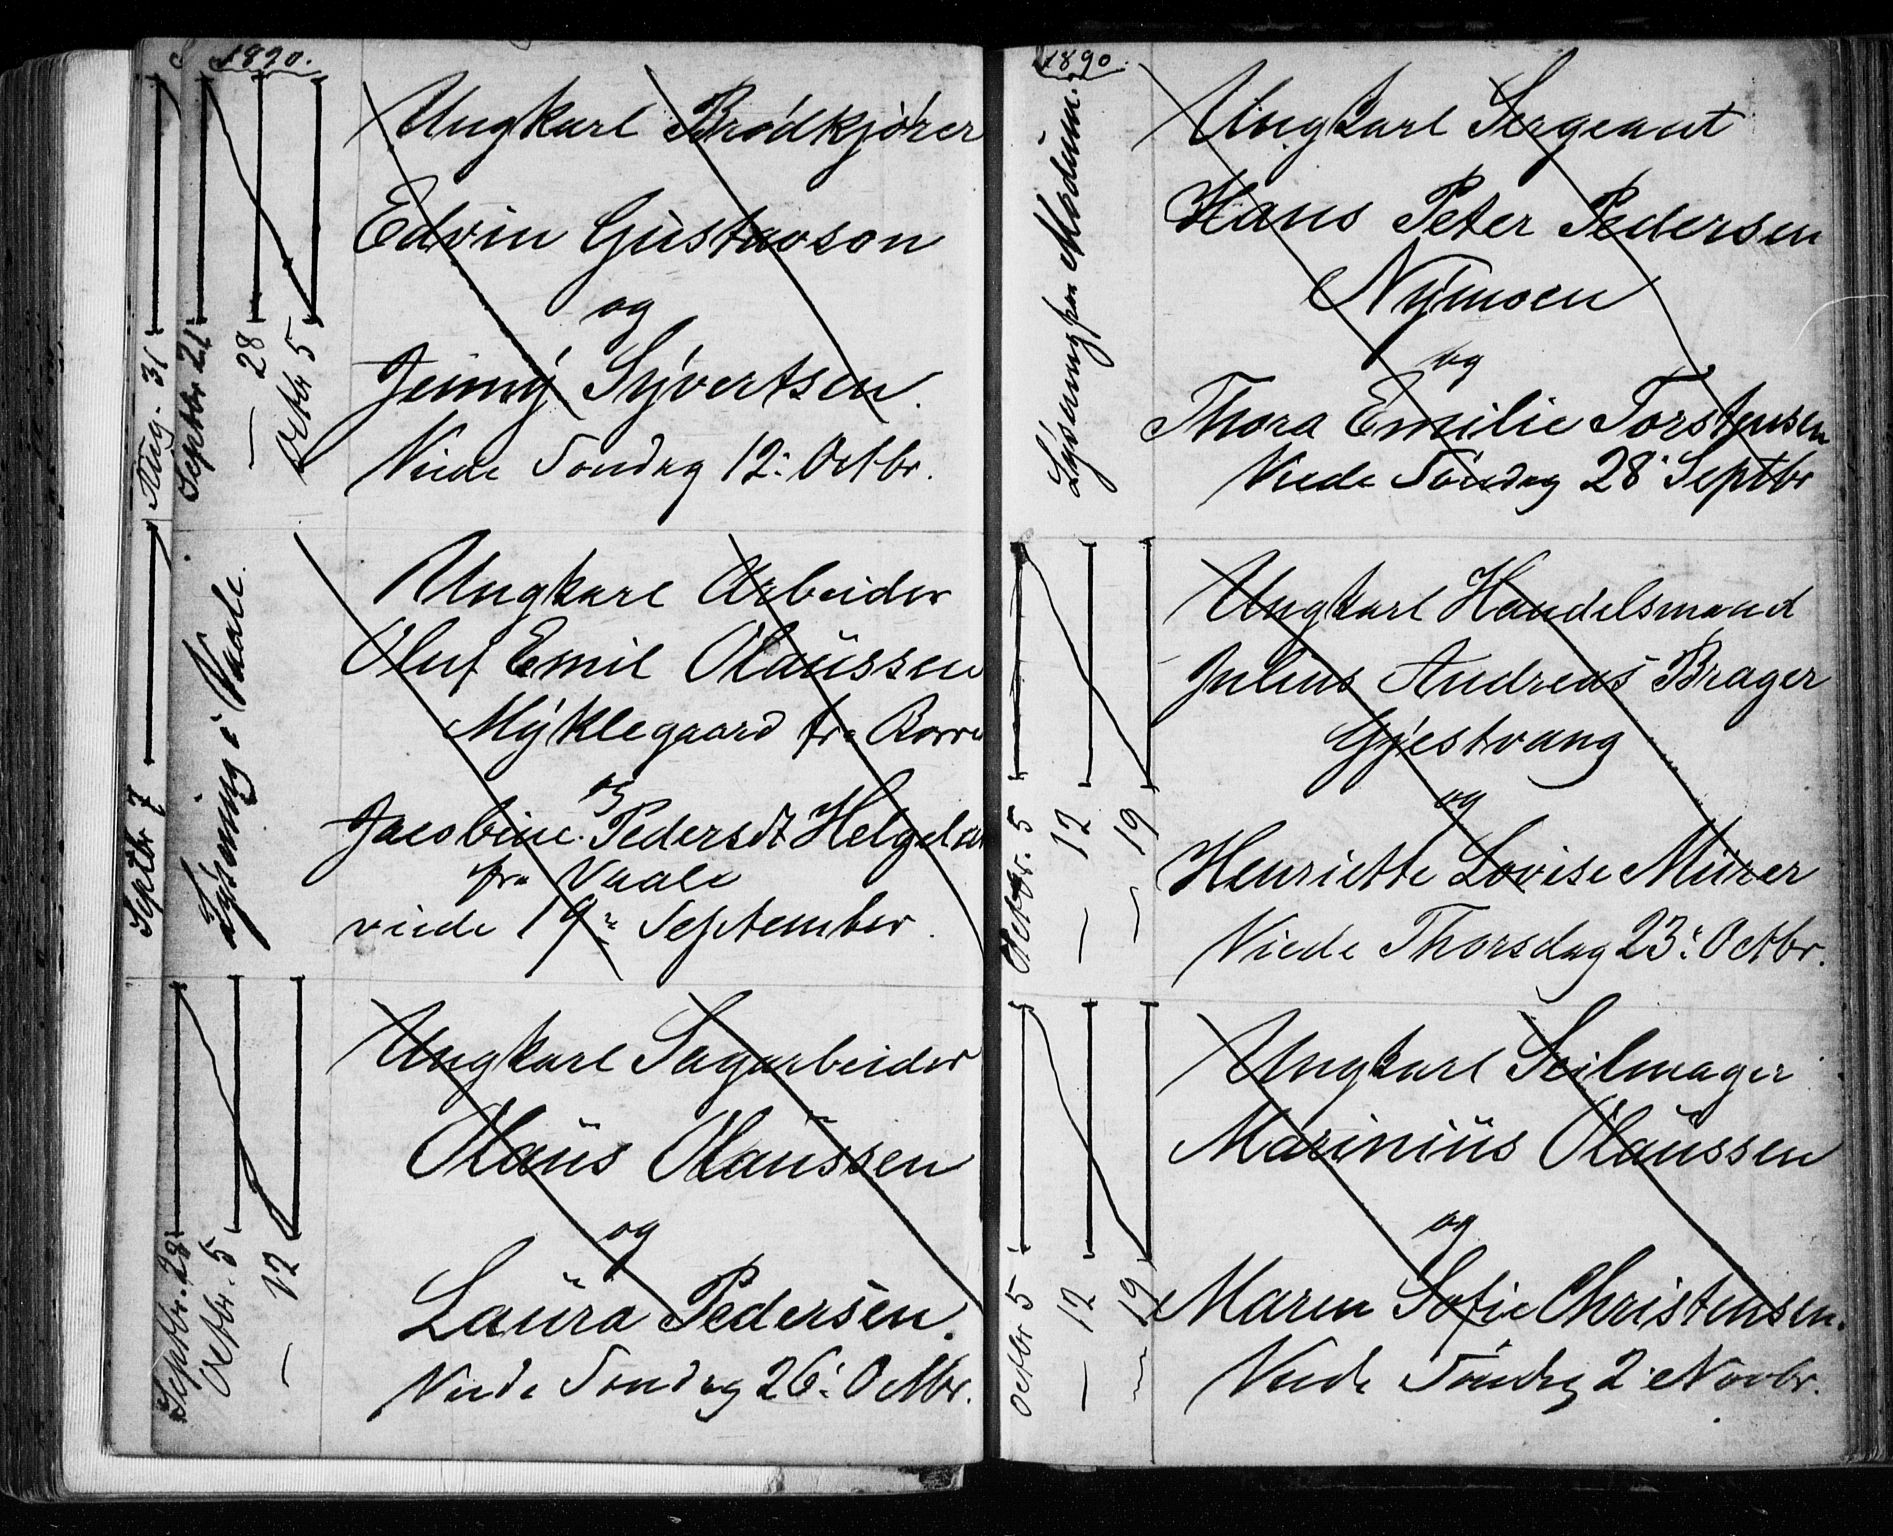 1890.
Aug. 31
Septbr 21
— 28
Octbr 5
Ungkarl Brødkjører
Edvin Gustavson
og
Jenny Syvertsen.
Viede Søndag 12: Octbr.
Septbr 7
Lysning i Vaale.
Ungkarl Arbeider
Oluf Emil Olaussen
Myklegaard fra Borre
og
Jacobine Pedersdt Helgeland
fra Vaale
viede 19: September.
Septbr. 28
Octbr. 5
— 12
Ungkarl Sagarbeider
Olaus Olaussen
og
Laura Pedersen.
Viede Søndag 26: Octbr.
1890.
Lysning fra Modum.
Ungkarl Sergeant
Hans Peter Pedersen
Nymoen
og
Thora Emilie Torstensen
Viede Søndag 28: Septbr
Octbr. 5
— 12
— 19
Ungkarl Handelsmand
Julius Andreas Brager
Gjestvang
og
Henriette Lovise Mürer
Viede Thorsdag 23: Octbr.
Octbr 5
— 12
— 19
Ungkarl Seilmager
Marinius Olaussen
og
Maren Sofie Christensen.
Viede Søndag 2: Novbr.